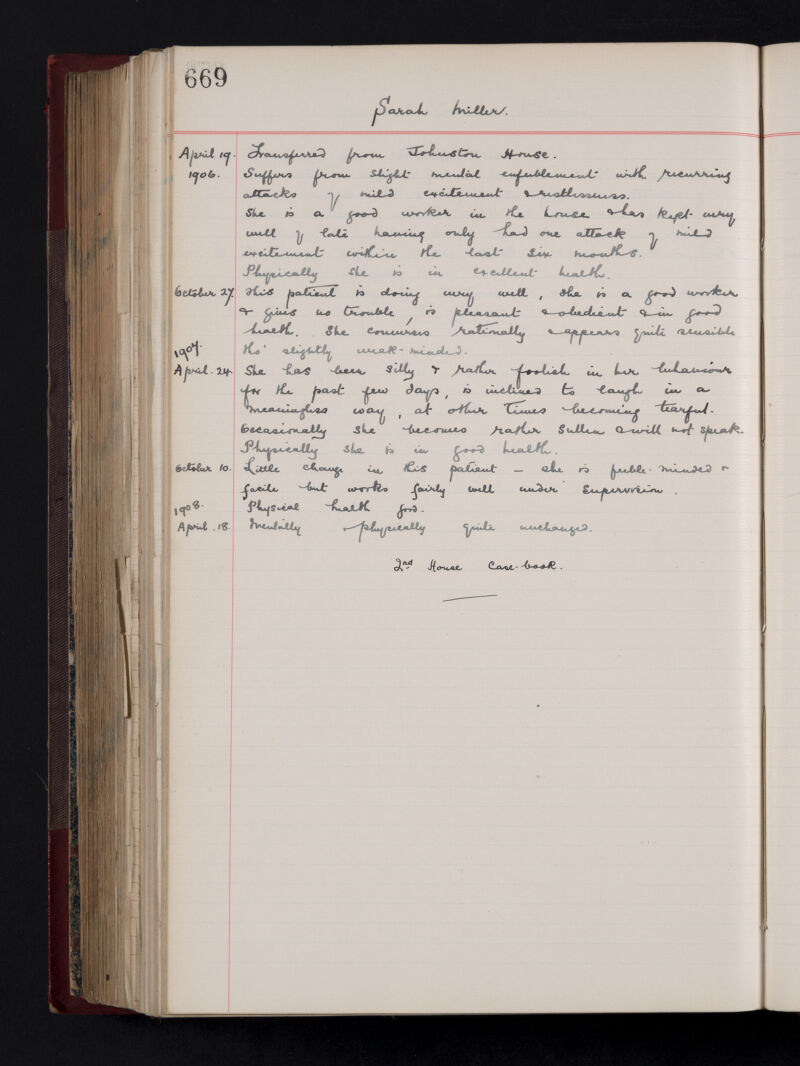 669
Sarah Miller.
April 19. Transferred from Johnston House.
1906. Suffers from slight mental enfeeblement with recurring
attacks of mild excitement & restlessness.
She is a good worker in the house & has kept very
well of late having only had one attack of mild
excitement within the last six months.
Physically she is in excellent health.
October 27. This patient is doing very well, she is a good worker
& gives no trouble, is pleasant & obedient & in good
health. She converses rationally & appears quite sensible
1907. tho' slightly weak-minded.
April. 24. She has been silly & rather foolish in her behaviour
for the past few days, is inclined to laugh in a
meaningless way, at other times becoming tearful.
Occasionally she becomes rather sullen & will not speak.
Physically she is in good health.
October 10. Little change in this patient – she is feeble-minded &
facile but works fairly well under supervision.
1908. Physical health good.
April. 18. Mentally & physically quite unchanged.
2nd House Case-book.